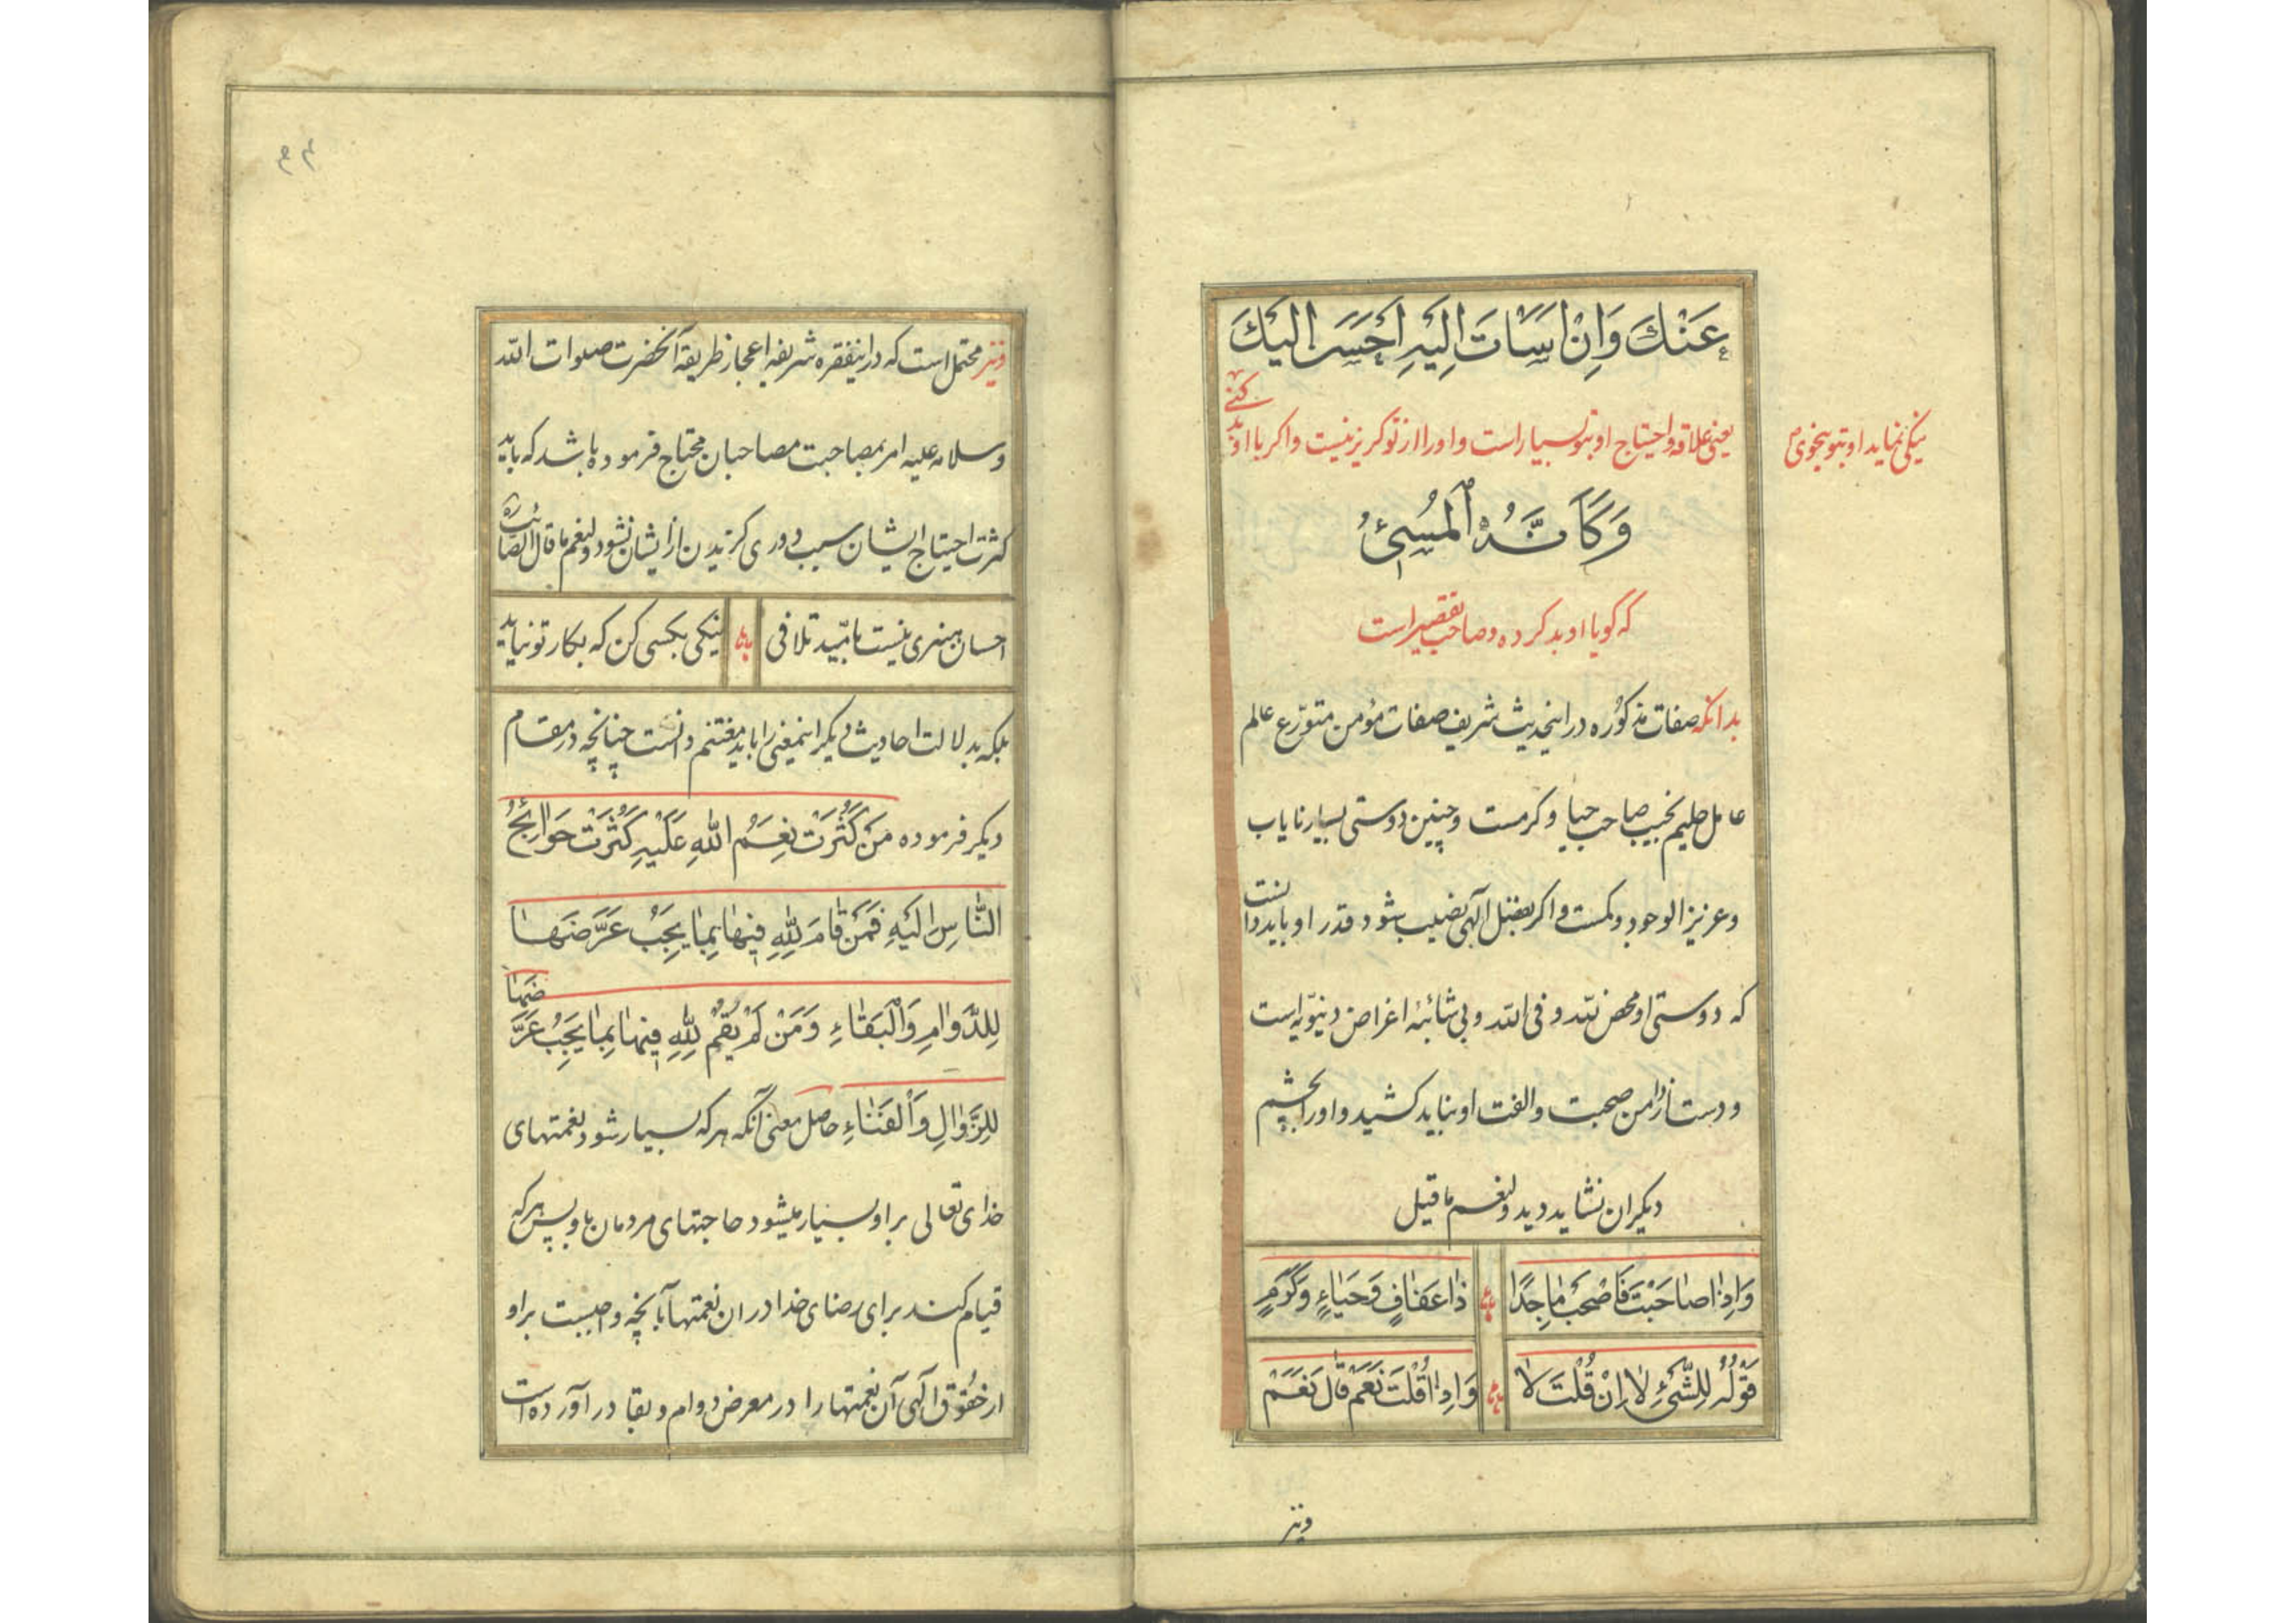 عَنْكَ وَاِنْ اَسَاْتَ اِلَيْهِ اَحْسَنَ اِلَيْكَ
یعنی علاقه و احتیاج او بتو بسیار است و اورا از تو کریز نیست و اکر با او بد کنی
نیکی نماید او بتو بنحوی
وَكَاَنَّهُ الْمُسِیئُ
که گویا او بد کرده و صاحب تقصیر است
بدانکه صفات مذکوره در اینحدیث شریف صفات مؤمن متورّع عالم
عامل حلیم نجیب صاحب حیا و کرمست و چنین دوستی بسیار نایاب
و عزیز الوجود و کمست و اکر بفضل آلهی نصیب شود قدر او باید دانست
که دوستی او محض لله و فی الله و بی شائبهٔ اغراض دنیویّه است
و دست از دامن صحبت و الفت او نباید کشید و اورا بچشم
دیکران نشاید دید و لنعم ما قیل
وَاِذَا صَاحَبْتَ فَاصْحَبْ مَاجِدًا ذَا عَفَافٍ وَحَيَاءٍ وَكَرَمٍ
قَوْلُهُ لِلشَّیْءِ لَا اِنْ قُلْتَ لَا وَاِذَا قُلْتَ نَعَمْ قَالَ نَعَمْ
ونیز
۴۴
ونیز محتمل است که در اینفقره شریفه اعجاز طریقه آنحضرت صلوات الله
وسلامه علیه امر بمصاحبت مصاحبان محتاج فرموده باشد که باید
کثرت احتیاج ایشان سبب دوری کزیدن از ایشان نشود و لنعم ما قال الصائب ره
احسان هنری نیست بامّید تلافی نیکی بکسی کن که بکار تو نیاید
بلکه بدلالت احادیث دیکر اینمعنی را باید مغتنم دانست چنانچه در مقام
دیکر فرموده مَنْ كَثُرَتْ نِعَمُ اللهِ عَلَيْهِ كَثُرَتْ حَوَائِجُ
النَّاسِ اِلَيْهِ فَمَنْ قَامَ لِلّٰهِ فِيهَا بِمَا يَجِبُ عَرَّضَهَا
لِلدَّوَامِ وَالْبَقَاءِ وَمَنْ لَمْ يَقُمْ لِلّٰهِ فِيهَا بِمَا يَجِبُ عَرَّضَهَا
لِلزَّوَالِ وَالْفَنَاءِ حاصل معنی آنکه هر که بسیار شود نعمتهای
خدای تعالی بر او بسیار میشود حاجتهای مردمان باو پس هر که
قیام کند برای رضای خدا در ان نعمتها بآنچه واجبست بر او
از حقوق آلهی آن نعمتها را در معرض دوام و بقا در آورده است